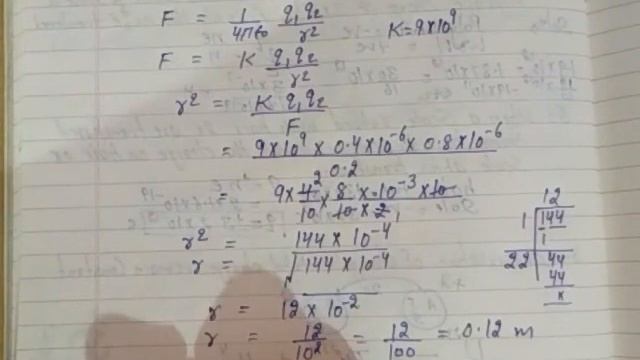 F = 1/4πε0 q1q2/r² K=9×10⁹
F = K q1q2/r²
r² = K q1q2/F
= 9×10⁹ × 0.4×10⁻⁶ × 0.8×10⁻⁶/0.2
9×4/10 × 8/10×2 × 10⁻³ × 10
2
1
r² = 144 × 10⁻⁴
r = √144 × 10⁻⁴
r = 12 × 10⁻²
r = 12/10² = 12/100 = 0.12 m
12
1 144
1
22 44
44
x